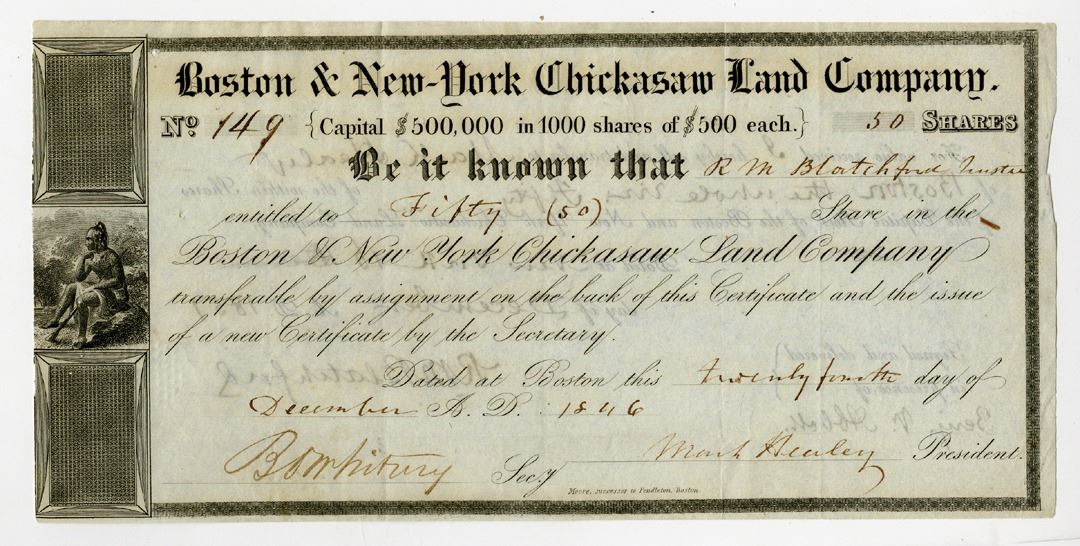 Boston & New-York Chickasaw Land Company.
No. 149 {Capital $500,000 in 1000 shares of $500 each.} 50 SHARES
Be it known that R M Blatchford Trustee
entitled to Fifty (50) Share in the
Boston & New York Chickasaw Land Company
transferable by assignment on the back of this Certificate and the issue
of a new Certificate by the Secretary.
Dated at Boston this twenty fourth day of
December A. D. 1846
Secy Mark Healey President.
Moore, successor to Pendleton, Boston